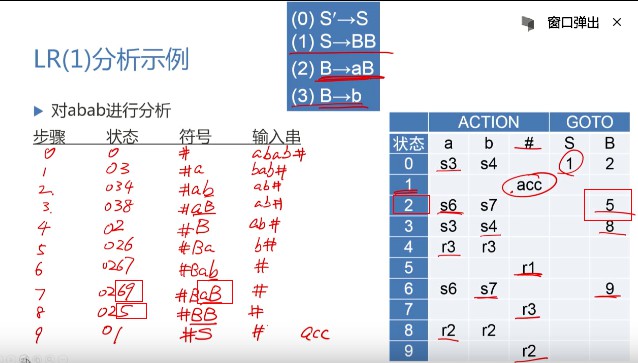 窗口弹出 ×
(0) S′→S
(1) S→BB
(2) B→aB
(3) B→b
LR(1)分析示例
对abab进行分析
步骤 状态 符号 输入串
0 0 # abab#
1 03 #a bab#
2. 034 #ab ab#
3. 038 #aB ab#
4 02 #B ab#
5 026 #Ba b#
6 0267 #Bab #
7 0269 #BaB #
8 025 #BB #
9 01 #S # acc
ACTION GOTO
状态 a b # S B
0 s3 s4 1 2
1 acc
2 s6 s7 5
3 s3 s4 8
4 r3 r3
5 r1
6 s6 s7 9
7 r3
8 r2 r2
9 r2